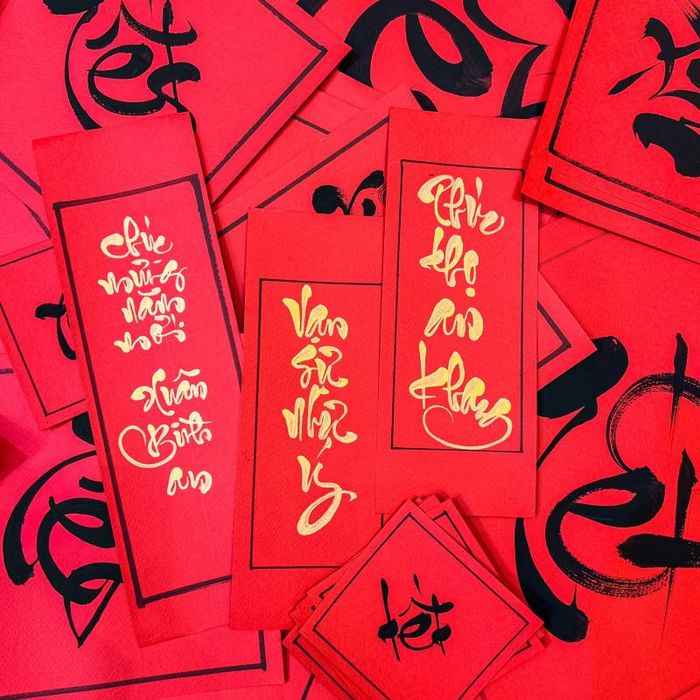 Chúc
mừng
năm
mới
Xuân
Bình
an
Vạn
sự
như
ý
Phúc
thọ
an
khang
tết